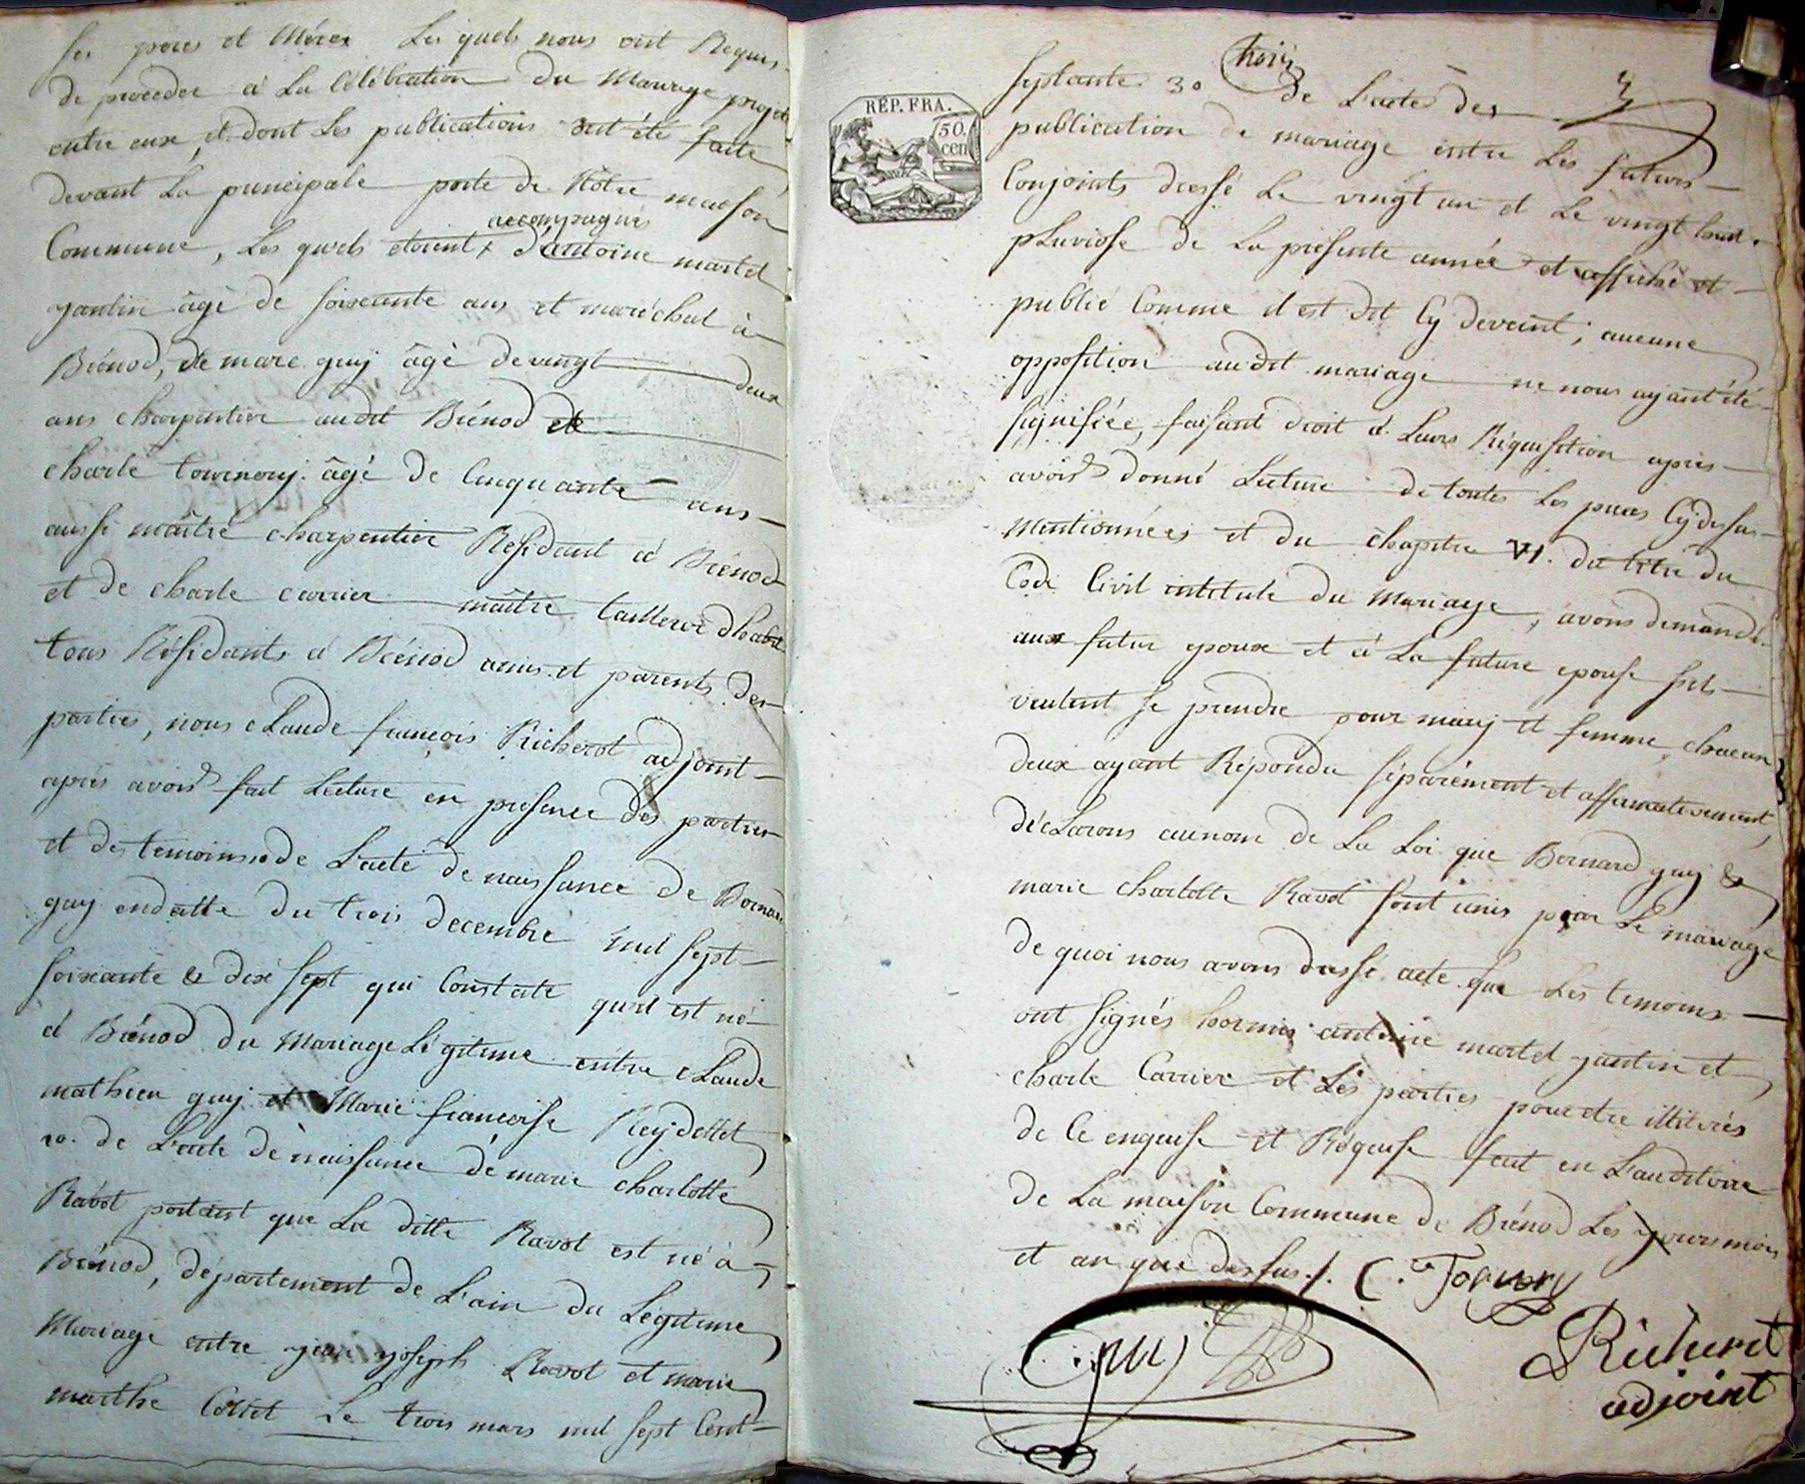 ses peres et Méres Les quels nous ont Requis
de proceder à La Célébration du Mariage projeté
entre eux, et dont Les publications ont été faite
devant La principale porte de Nôtre maison
accompagnés
Commune, Les quels etoient + d'antoine martel
yantin âgé de soixante ans et maréchal à
Brénod, de marc guy âgé de vingt deux
ans charpentier audit Brénod et
charle tournery âgé de Cinquante ans
aussi maître charpentier Résidant à Brénod
et de charle carrier maître tailleur dhabit
tous Résidants à Brénod amis et parents des
parties, nous claude françois Richerot adjoint
après avoir fait Lecture en presence des parties
et des temoins 1o de L'acte de naissance de Bernard
guy endatte du trois decembre mil sept
soixante & dix sept qui Constate qu'il est né
à Brénod du Mariage Légitime entre claude
mathieu guy et Marie françoise Reydellet
2o. de L'acte de naissance de marie charlotte
Ravot portant que La ditte Ravot est né à
Brénod, département de L'ain du Légitime
Mariage entre jean joseph Ravot et marie
marthe Colliet Le trois mars mil sept Cent
RÉP. FRA.
50.
cen
trois
septante 3o de L'acte des
publication de mariage entre Les futurs
Conjoints dressé Le vingt un et Le vingt huit
pluviose de La présente année et affiché et
publié Comme il est dit Cy devant; aucune
opposition audit mariage ne nous ayant été
signifiée, faisant droit à Leurs Réquisition après
avoir donné Lecture de toutes Les pieces Cy dessus
mentionnées et du chapitre VI. du titre du
Code Civil intitulé du Mariage, avons demandé
aux futur epoux et à La future epouse s'ils
veulent se prendre pour mary et femme, chacun
deux ayant Répondu séparément et affirmativement,
déclarons aunom de La Loi que Bernard guy &
marie charlotte Ravot sont unis par Le mariage
de quoi nous avons dressé acte que Les temoins
ont signés hormis antoine martel yantin et
charle Carrier et Les parties pour etre illiterés
de Ce enquise et Réquise fait en L'auditoire
de La maison Commune de Brénod Les jours mois
et an que dessus ./. C. Tornery
Guy
Richerot
adjoint